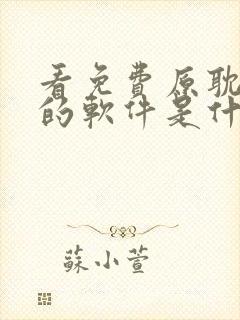 看免費原耽
的軟件是什
蘇小萱